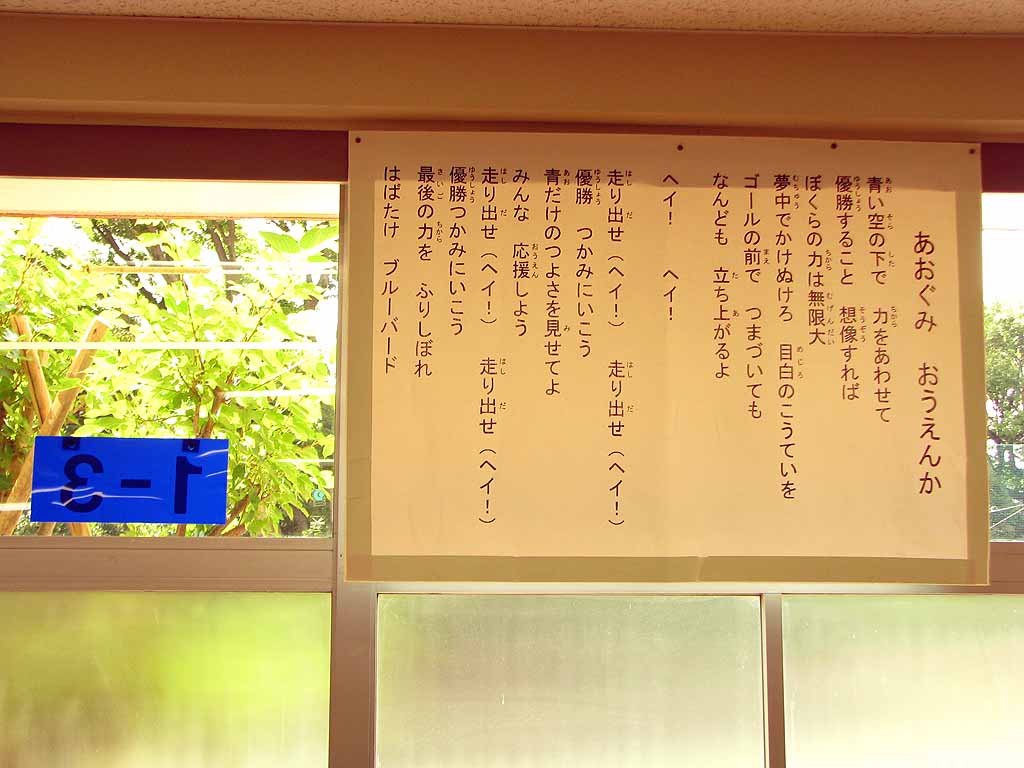 あおぐみ　おうえんか
青い空の下で　力をあわせて
優勝すること　想像すれば
ぼくらの力は無限大
夢中でかけぬけろ　目白のこうていを
ゴールの前で　つまづいても
なんども　立ち上がるよ
ヘイ！　ヘイ！
走り出せ（ヘイ！）　走り出せ（ヘイ！）
優勝　つかみにいこう
青だけのつよさを見せてよ
みんな　応援しよう
走り出せ（ヘイ！）　走り出せ（ヘイ！）
優勝つかみにいこう
最後の力を　ふりしぼれ
はばたけ　ブルーバード
1-3